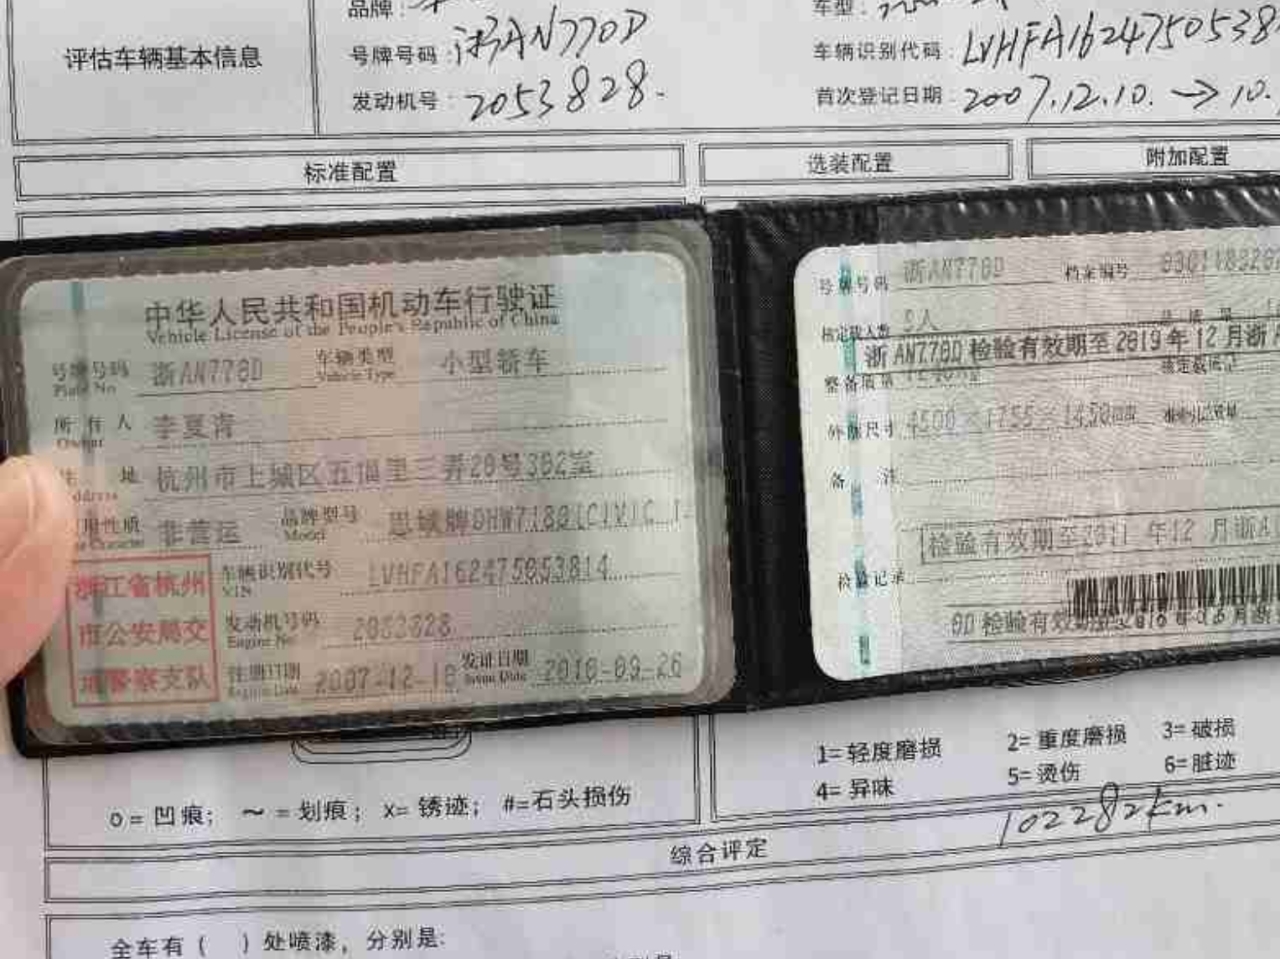 品牌：
车型：
评估车辆基本信息
号牌号码：浙AN770D
车辆识别代码：LVHFA1624750538
发动机号：2053828.
首次登记日期：2007.12.10. → 10.
标准配置
选装配置
附加配置
中华人民共和国机动车行驶证
Vehicle License of the People's Republic of China
号牌号码 浙AN770D 车辆类型 小型轿车
Plate No. Vehicle Type
所有人 李夏青
Owner
住 地 杭州市上城区五福里三弄20号302室
Address
使用性质 非营运 品牌型号 思域牌DHW7180(CIVIC 1.
Model
浙江省杭州
市公安局交
通警察支队
车辆识别代号 LVHFA162475053814
VIN
发动机号码 2053828
Engine No.
注册日期 2007-12-10 发证日期 2010-09-26
Register Date Issue Date
号牌号码 浙AN770D 档案编号
核定载人数 5人 总质量
浙AN770D 检验有效期至2019年12月浙A
整备质量
外廓尺寸 4500×1755×1450mm
备 注
检验有效期至2011 年12 月浙A
检验记录
0D 检验有效期至
1=轻度磨损 2=重度磨损 3=破损
4=异味 5=烫伤 6=脏迹
o=凹痕； ～=划痕； x=锈迹； #=石头损伤
102282km.
综合评定
全车有（ ）处喷漆，分别是: